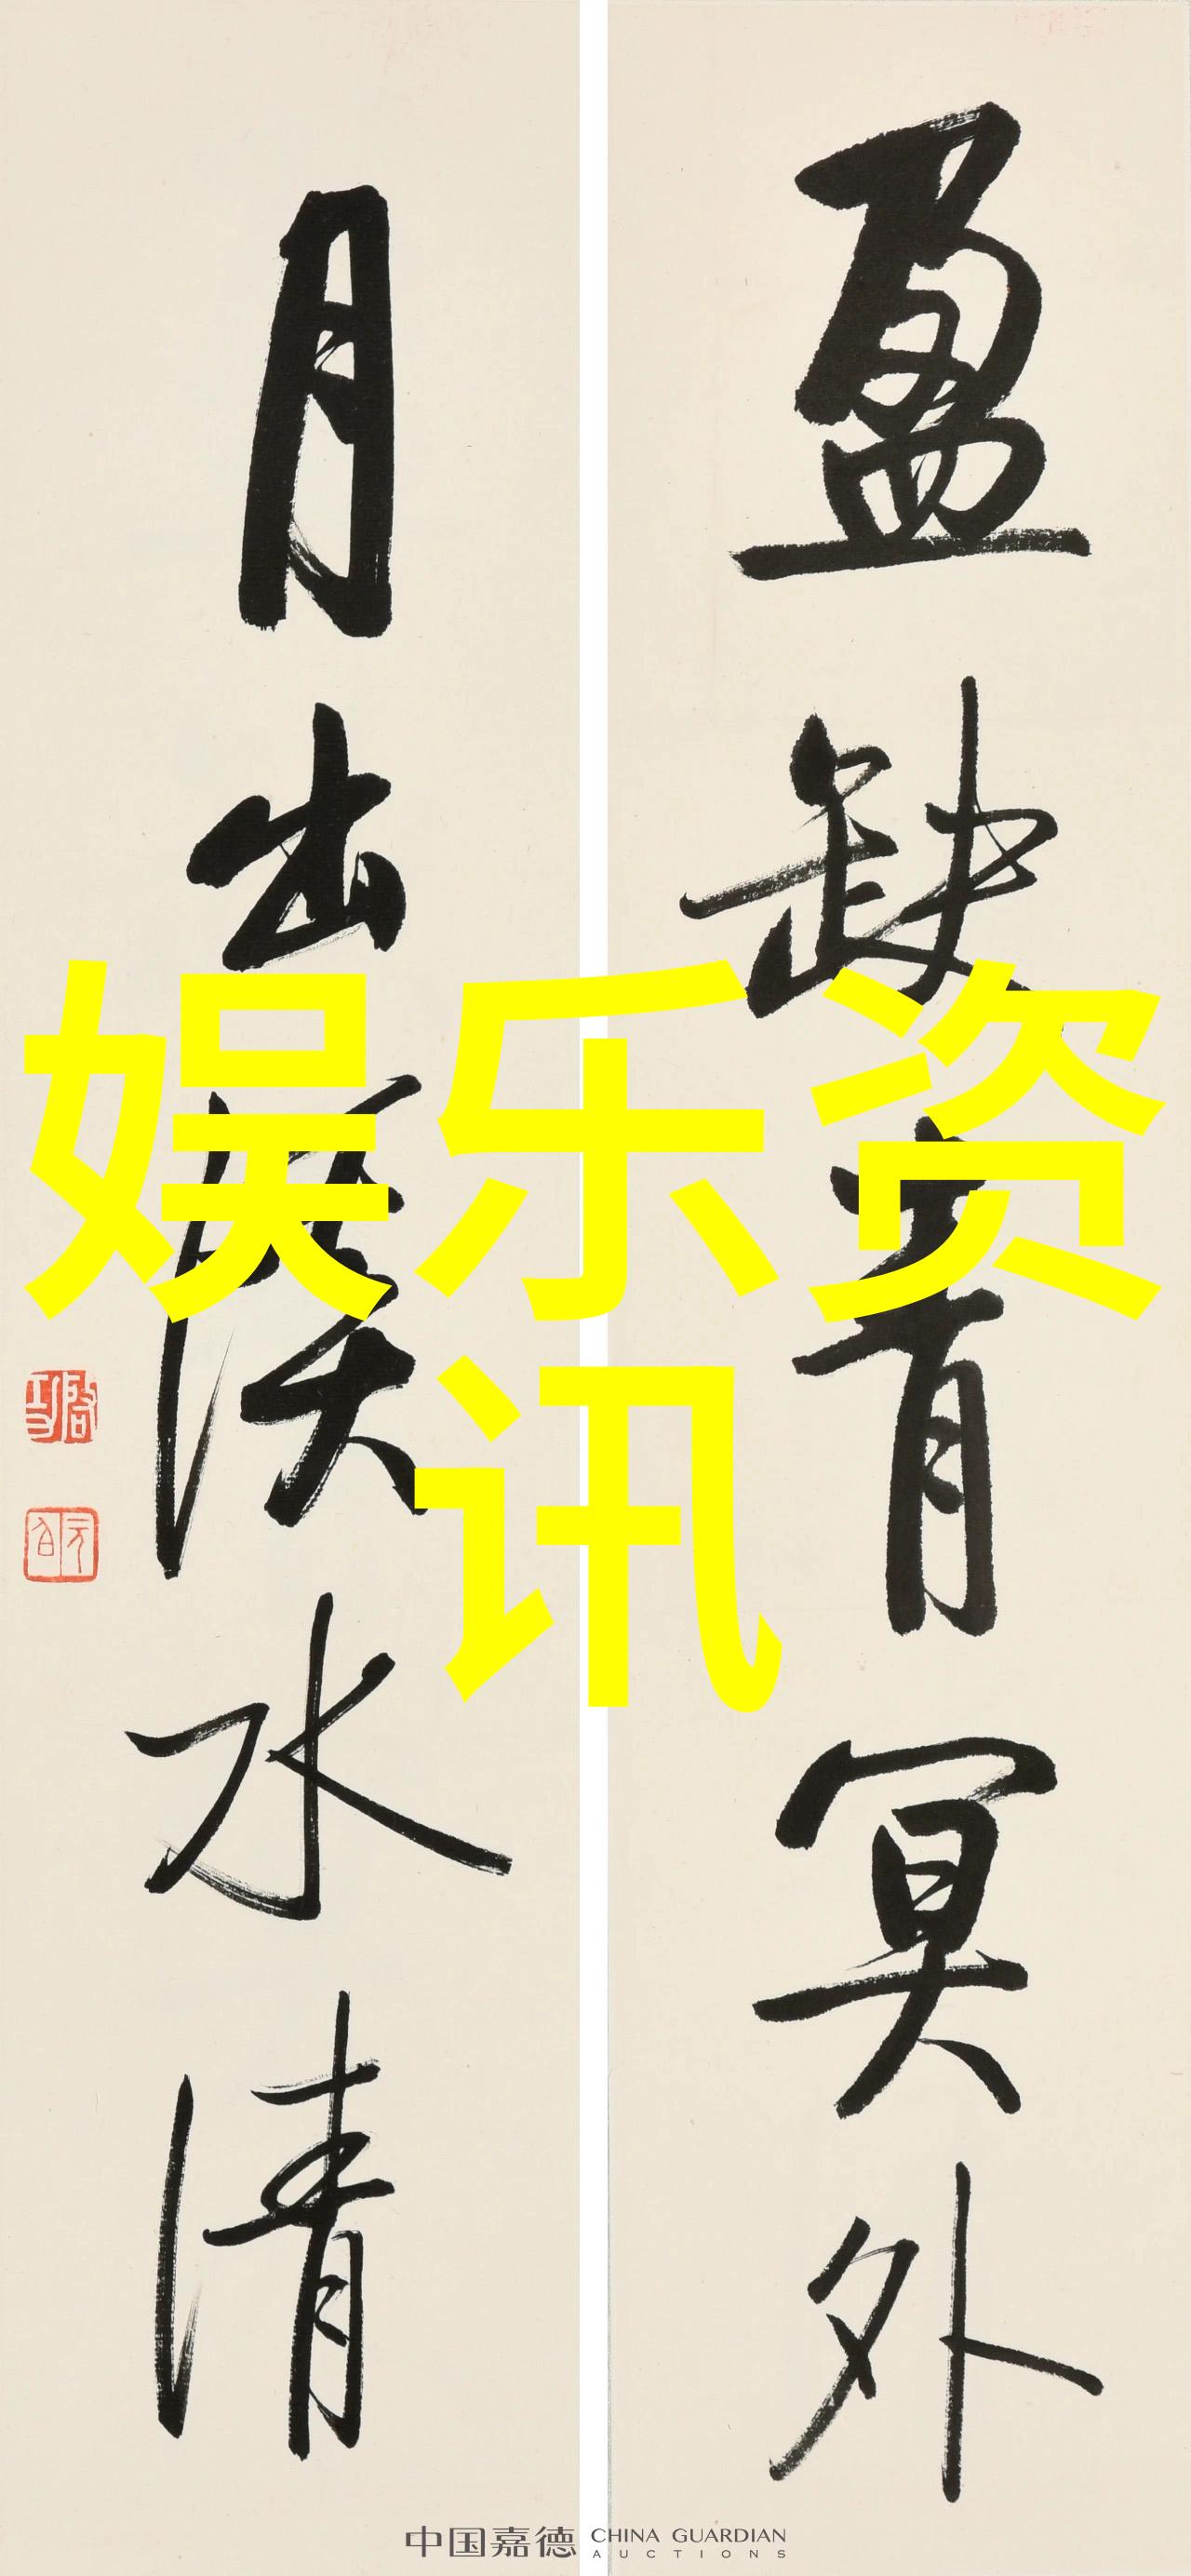 盈缺青冥外
月出溪水清
启功
元白
娱乐资
讯
中国嘉德 CHINA GUARDIAN
AUCTIONS